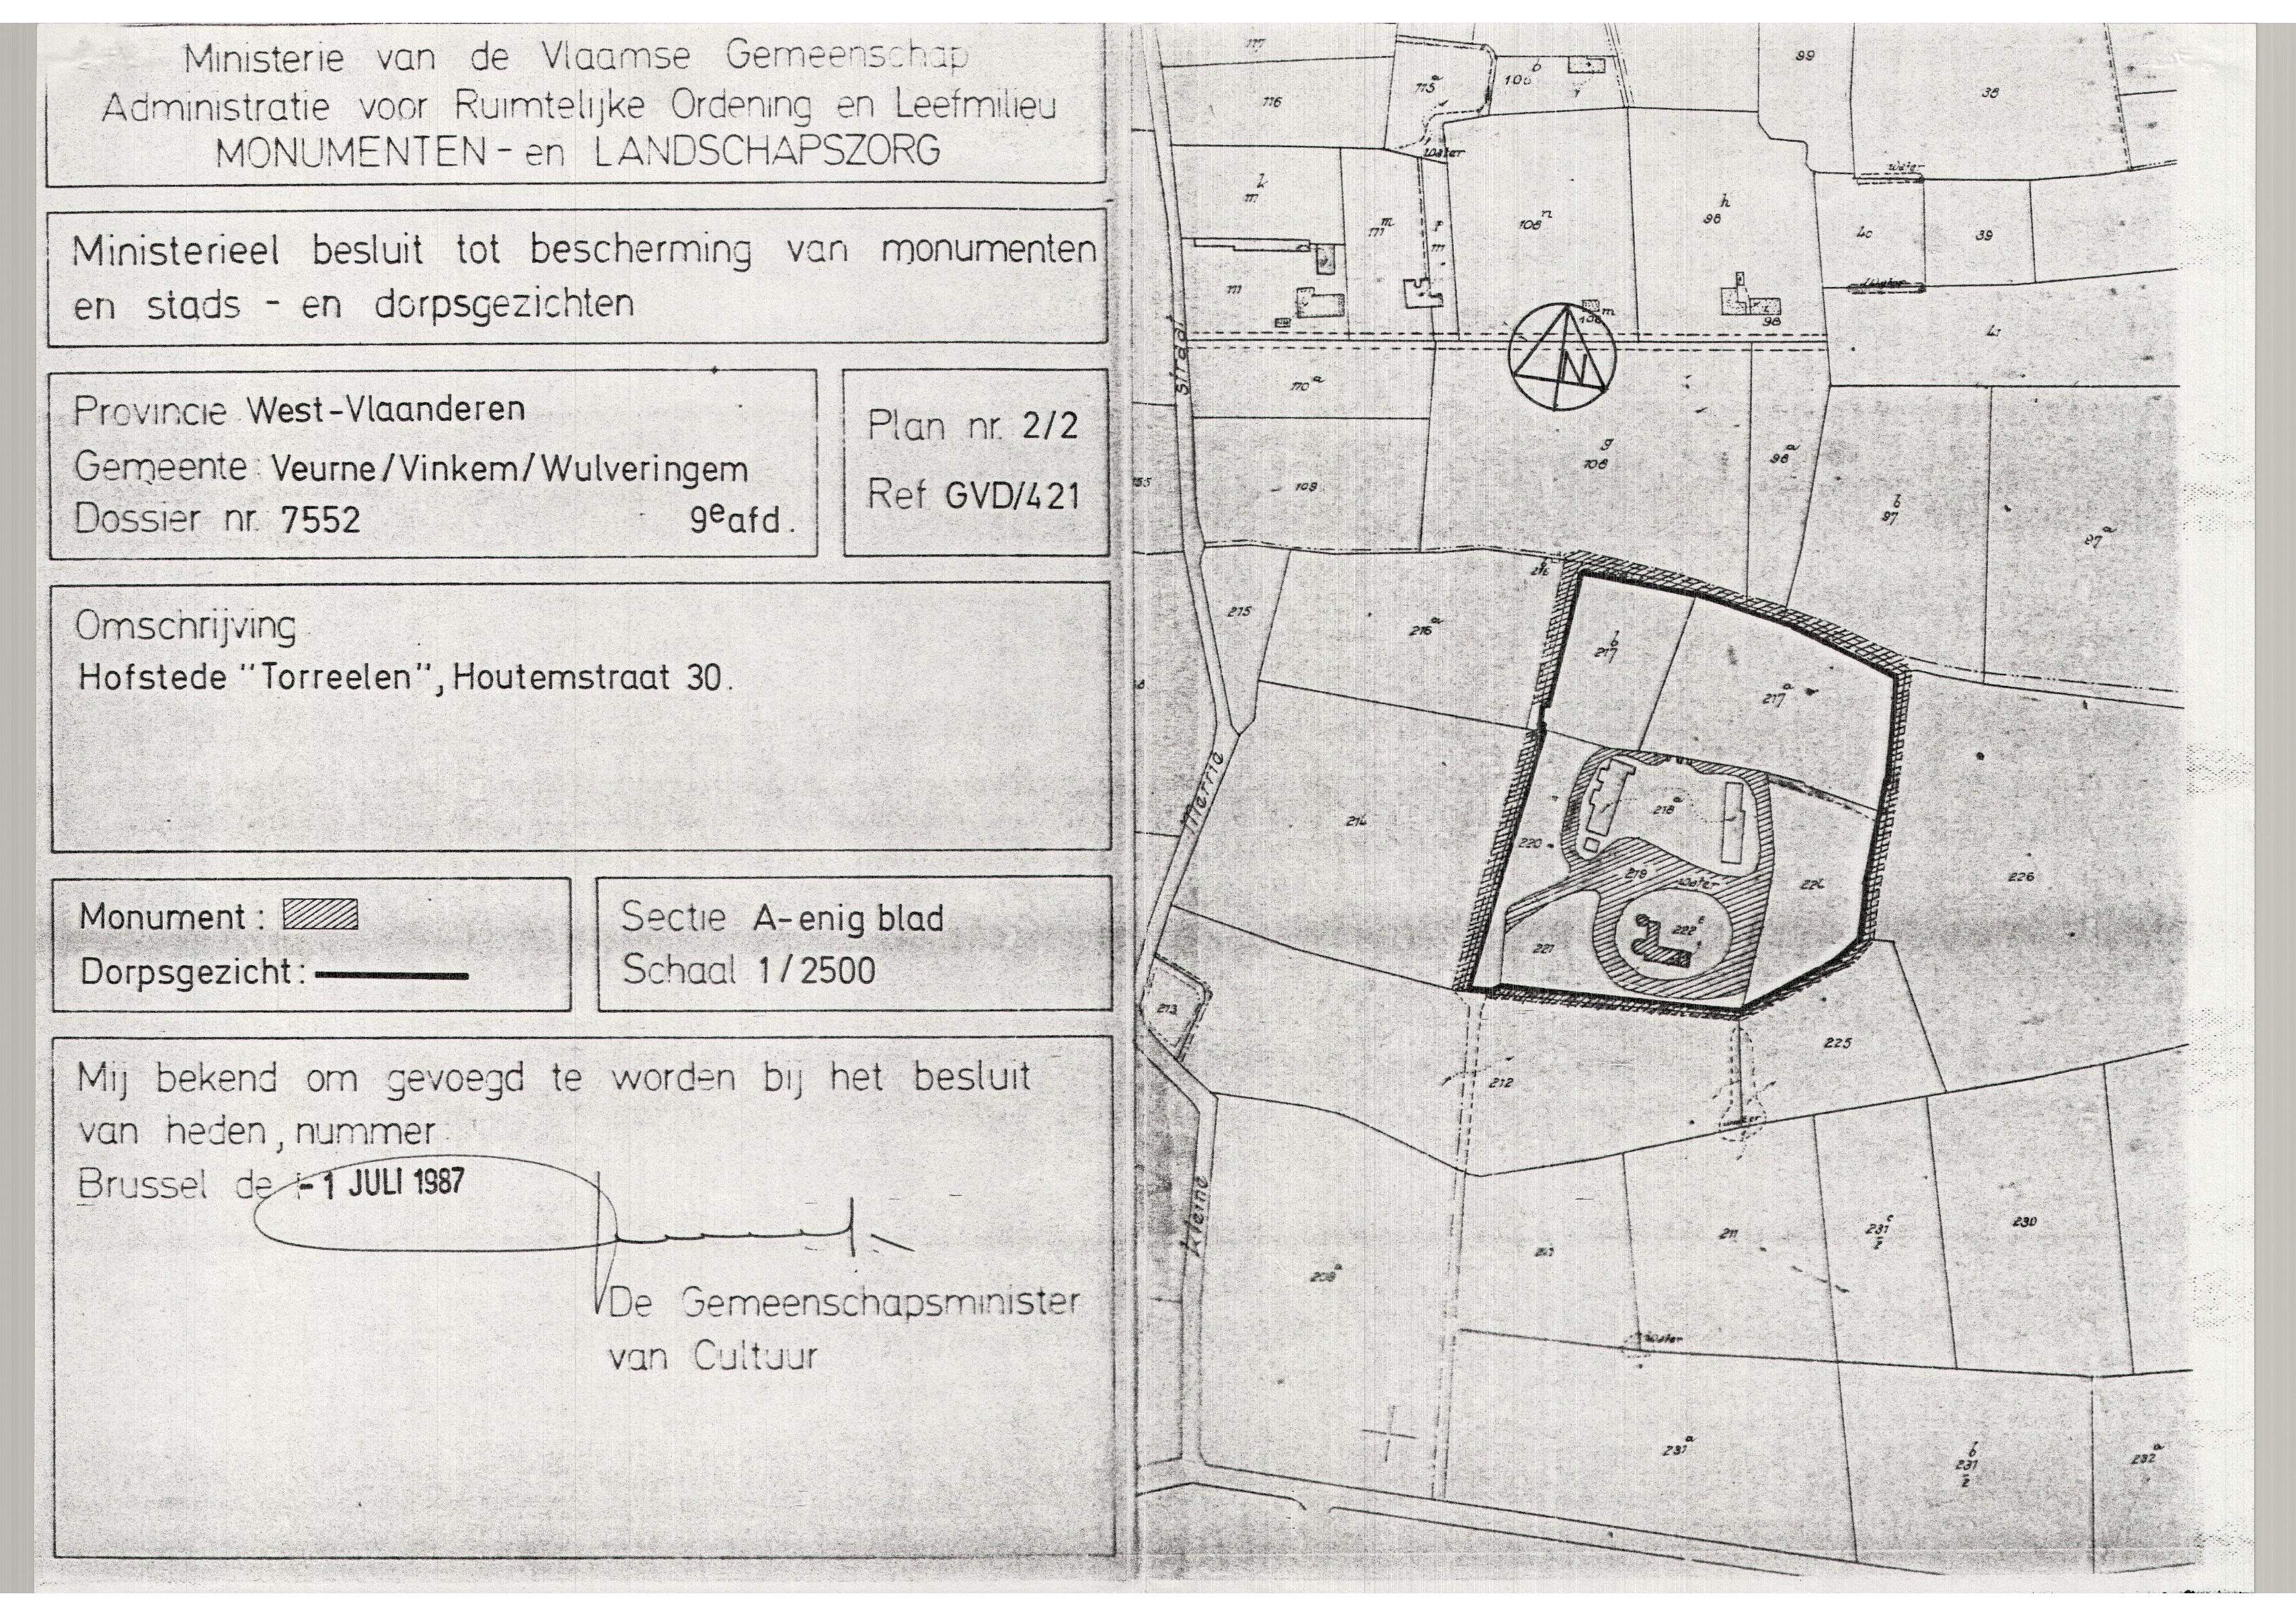 Ministerie van de Vlaamse Gemeenschap
Administratie voor Ruimtelijke Ordening en Leefmilieu
MONUMENTEN - en LANDSCHAPSZORG
Ministerieel besluit tot bescherming van monumenten
en stads - en dorpsgezichten
Provincie West-Vlaanderen
Gemeente : Veurne/Vinkem/Wulveringem
Dossier nr. 7552 9e afd.
Plan nr. 2/2
Ref GVD/421
Omschrijving
Hofstede "Torreelen", Houtemstraat 30.
Monument :
Dorpsgezicht :
Sectie A-enig blad
Schaal 1/2500
Mij bekend om gevoegd te worden bij het besluit
van heden, nummer
Brussel de -1 JULI 1987
De Gemeenschapsminister
van Cultuur
117
116
115a
106b
99
38
water
water
111m
106n
98h
40
39
111
water
106m
98
41
straat
110a
109
106g
98a
97b
97a
N
215
216a
217b
217a
214
218a
220
219
water
226
221
222E
Marria
213
225
212
Kleine
208a
211
231c
2
230
water
231a
231b
2
232a